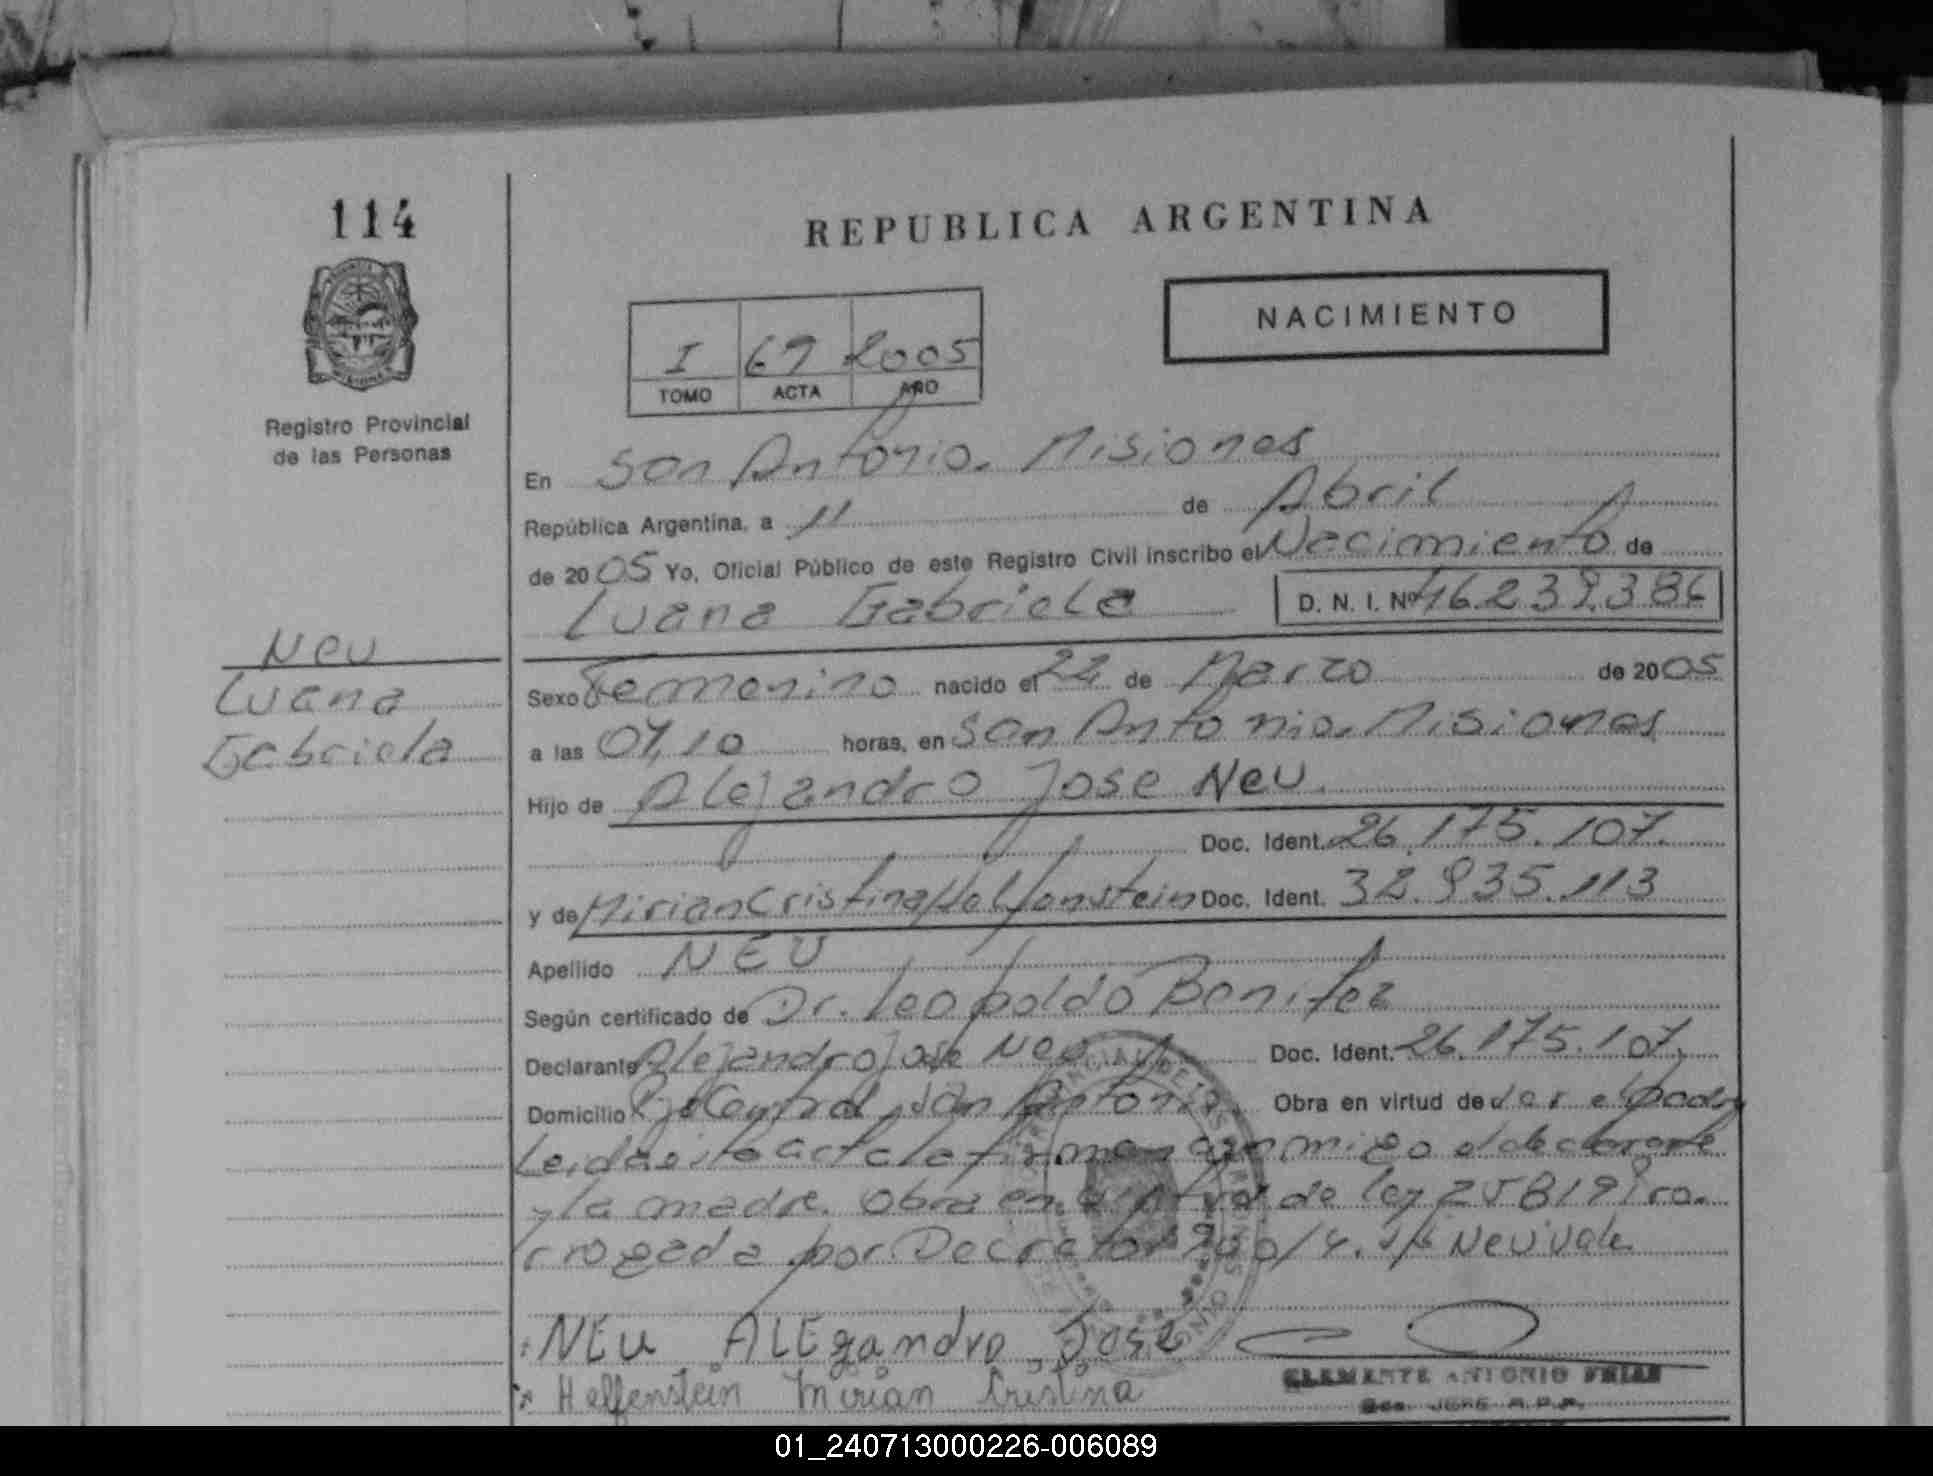 114
REPUBLICA ARGENTINA
NACIMIENTO
I 69 2005
TOMO ACTA AÑO
Registro Provincial
de las Personas
En San Antonio. Misiones
República Argentina, a 11 de Abril
de 2005 Yo, Oficial Público de este Registro Civil inscribo el Nacimiento de
Luana Gabriela D. N. I. Nº 46.239.386
Neu
Luana
Gabriela
Sexo Femenino nacido el 22 de Marzo de 2005
a las 07,10 horas, en San Antonio. Misiones
Hijo de Alejandro Jose Neu.
Doc. Ident. 26.175.107.
y de Mirian Cristina Helfenstein Doc. Ident. 32.935.113
Apellido NEU
Según certificado de Dr. Leopoldo Benitez
Declarante Alejandro Jose Neu Doc. Ident. 26.175.107.
Domicilio San Antonio. Obra en virtud de ser el padre
Leida esta acta la firman conmigo el declarante
y la madre. Obra en virtud de ley 25819 Pro.
rrogada por Decreto Neu vale
NEU ALEjandro Jose
Helfenstein Mirian Cristina
CLEMENTE ANTONIO FRIAS
JEFE R.P.P.
01_240713000226-006089